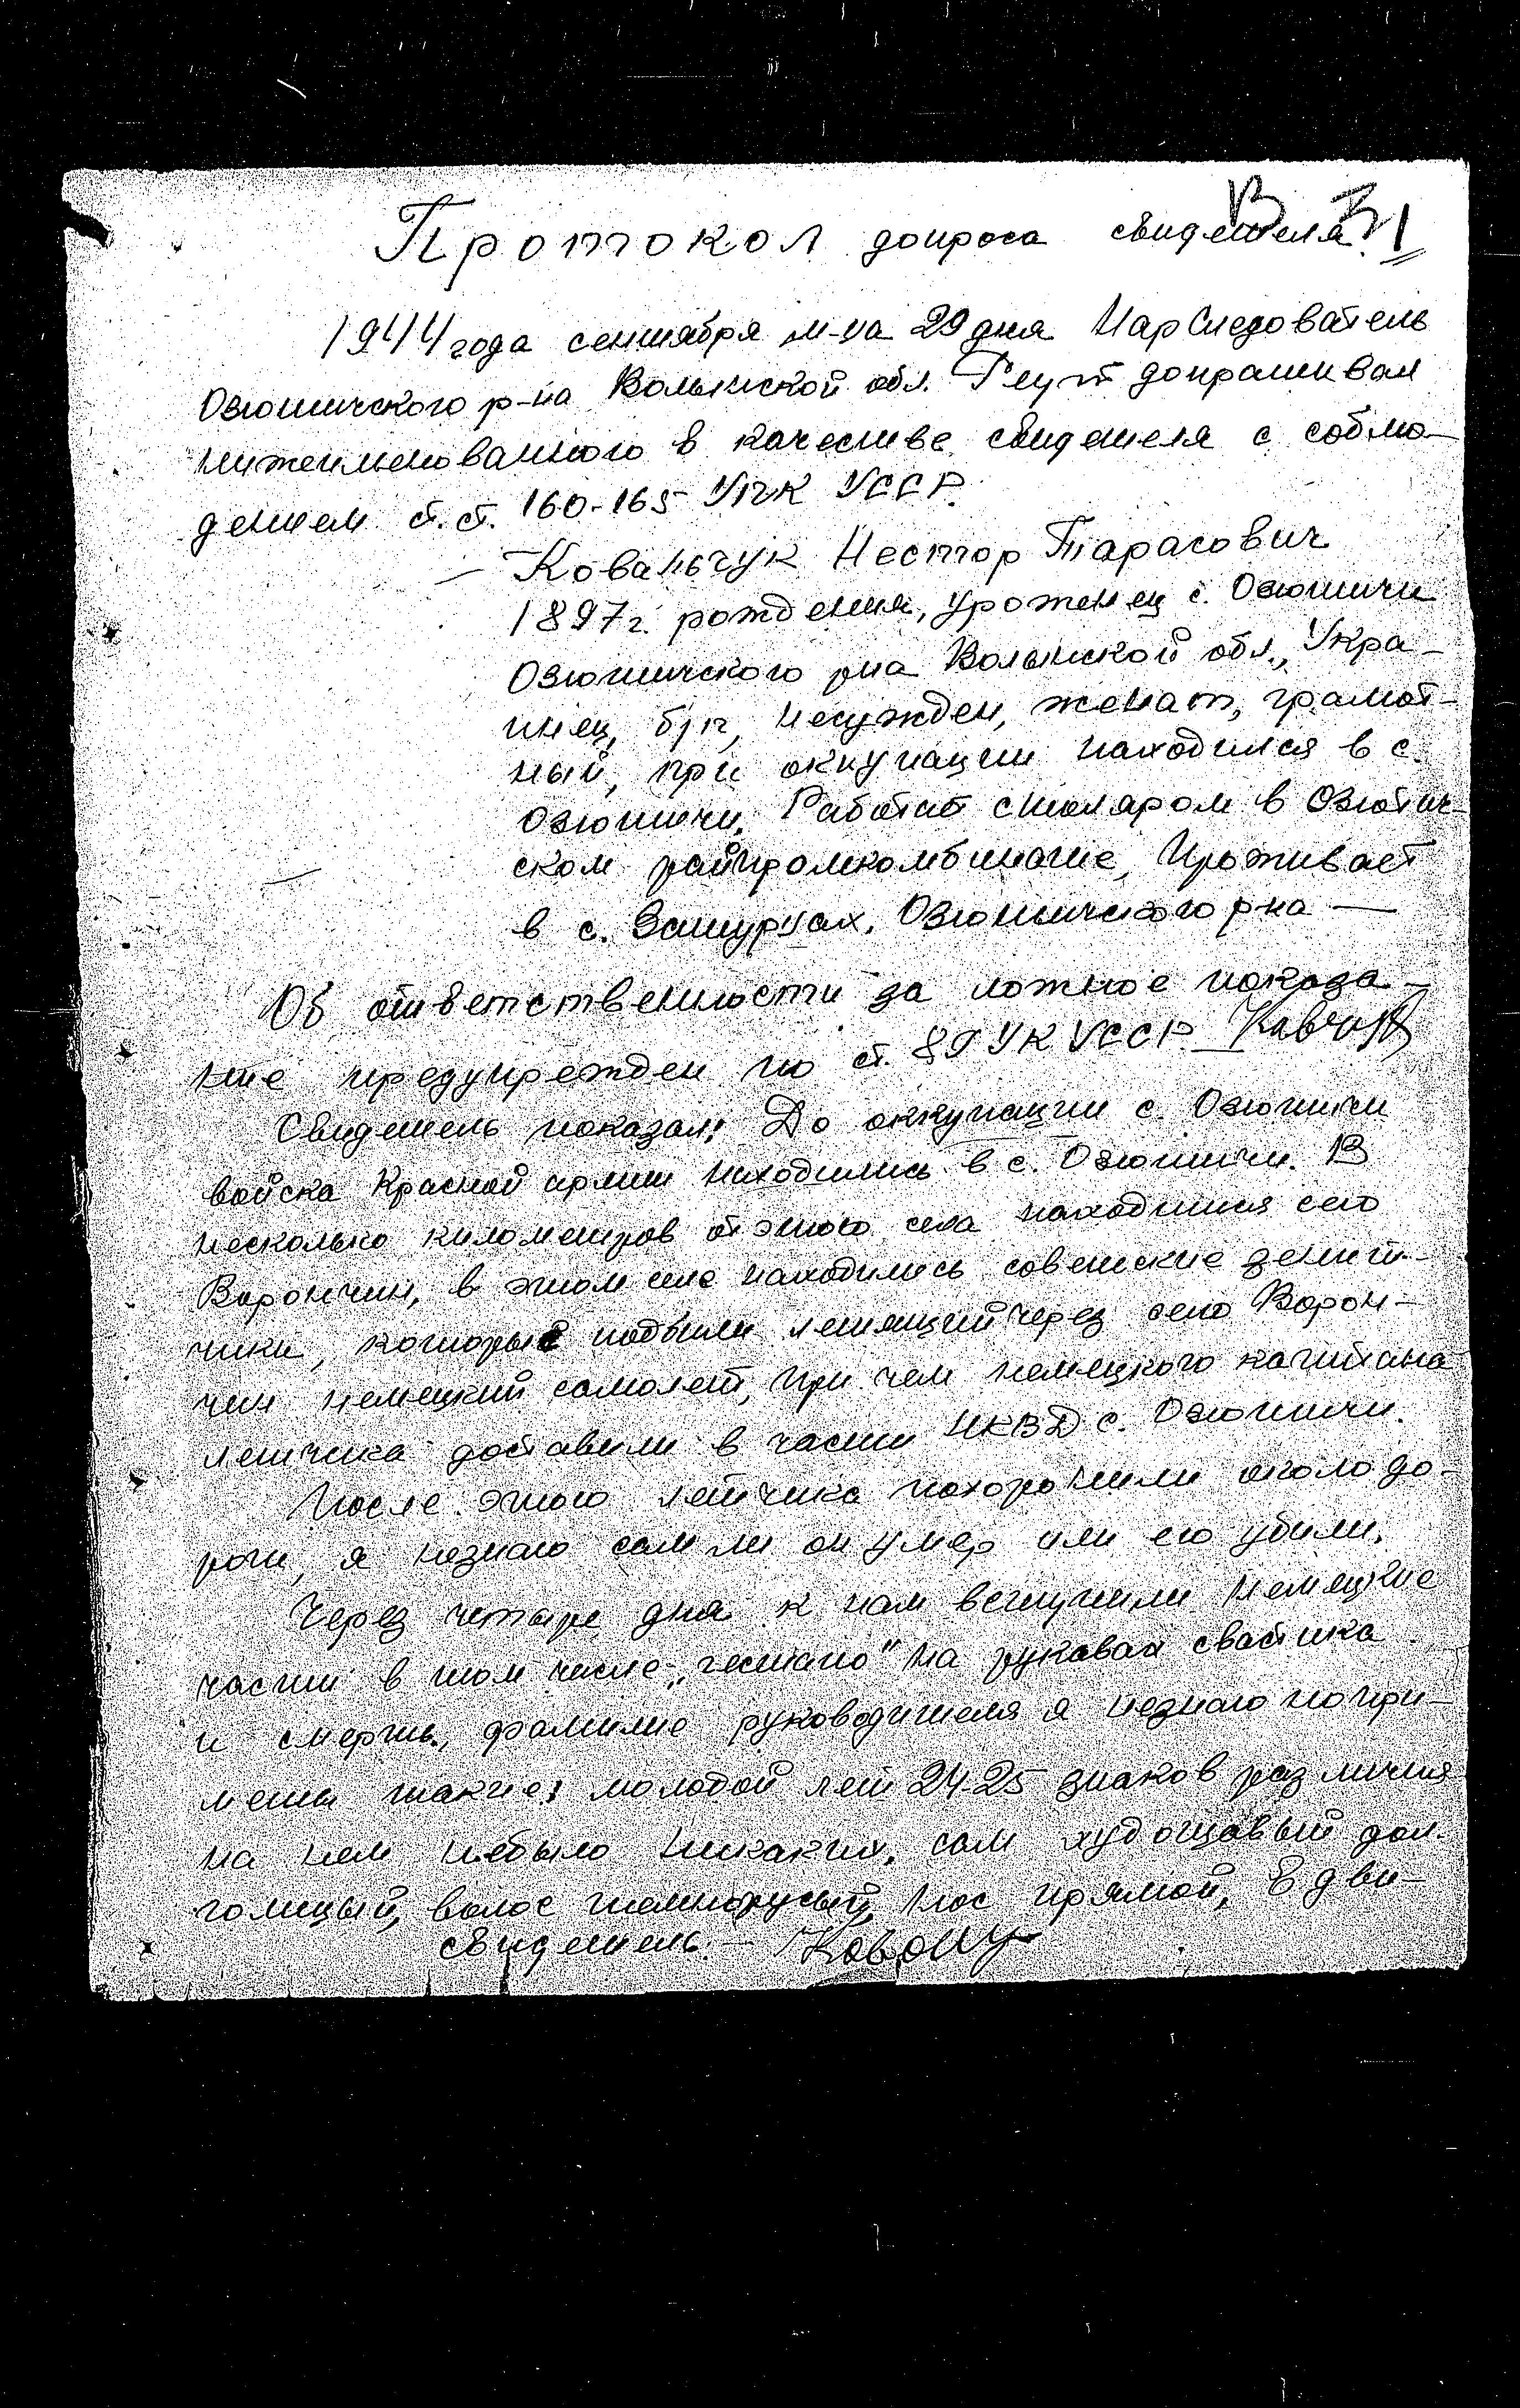 Протокол допроса свидетеля
1944 года сентября м-ца 29 дня Нарследователь
Озютичского р-на Волынской обл. Реут допрашивал
нижеименованного в качестве свидетеля с соблю-
дением ст. ст. 160-165 УПК УССР.
— Ковальчук Нестор Тарасович
1897 г. рождения, уроженец с. Озютичи
Озютичского рна Волынской обл., Укра-
инец, б/п, несужден, женат, грамот-
ный, при оккупации находился в с.
Озютичи. Работает столяром в Озютич-
ском райпромкомбинате, Проживает
в с. Затурцах, Озютичского рна —
Об ответственности за ложное показа-
ние предупрежден по ст. 89 УК УССР —
Свидетель показал: До оккупации с. Озютичи
войска Красной армии находились в с. Озютичи. В
несколько километров от этого села находится село
Ворончин, в этом селе находились советские зенит-
чики, которые подбили летящий через село Ворон-
чин немецкий самолет, при чем немецкого капитана
летчика доставили в части НКВД с. Озютичи.
После этого летчика похоронили около до-
роги, я незнаю сам ли он умер или его убили.
Через четыре дня к нам вступили немецкие
части в том числе „гестапо" на рукавах свастика
и смерть, фамилие руководителя я незнаю по при-
меты такие: молодой лет 24-25 знаков различия
на нем небыло никаких, сам худощавый дол-
голицый, волос темнорусый, нос прямой, Едви-
свидетель: —